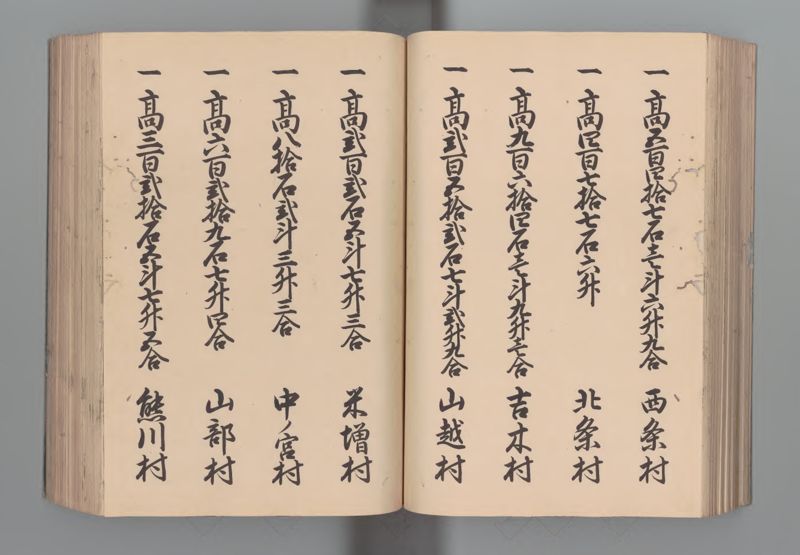 一高五百四拾七石壱斗六升九合 西条村
一高四百七拾七石六升 北条村
一高九百六拾四石壱斗九升壱合 吉木村
一高弐百五拾弐石七斗弐升九合 山越村
一高弐百弐石五斗七升三合 米増村
一高八拾石弐斗三升三合 中ノ宮村
一高六百弐拾九石七升四合 山部村
一高三百弐拾石五斗七升五合 熊川村